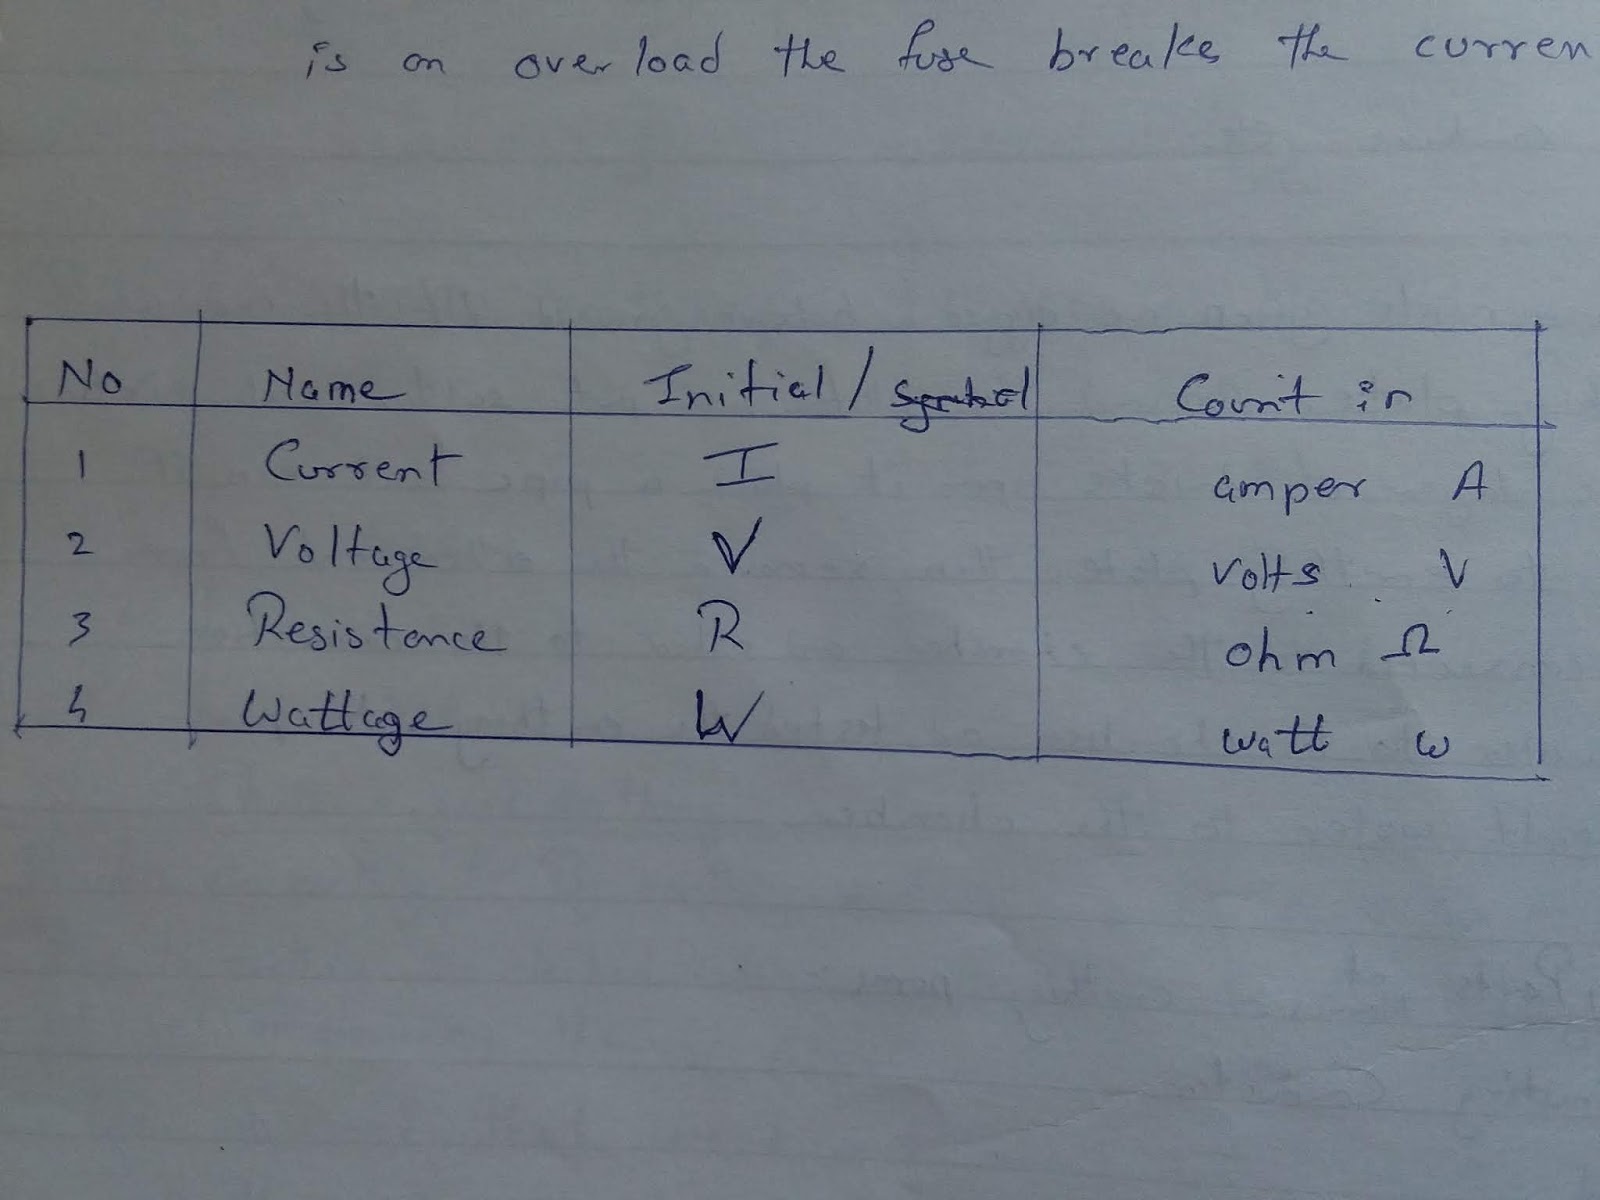 is on over load the fuse breaks the curren
No Name Initial / Symbol Count in
1 Current I amper A
2 Voltage V volts V
3 Resistance R ohm Ω
4 Wattage W watt w